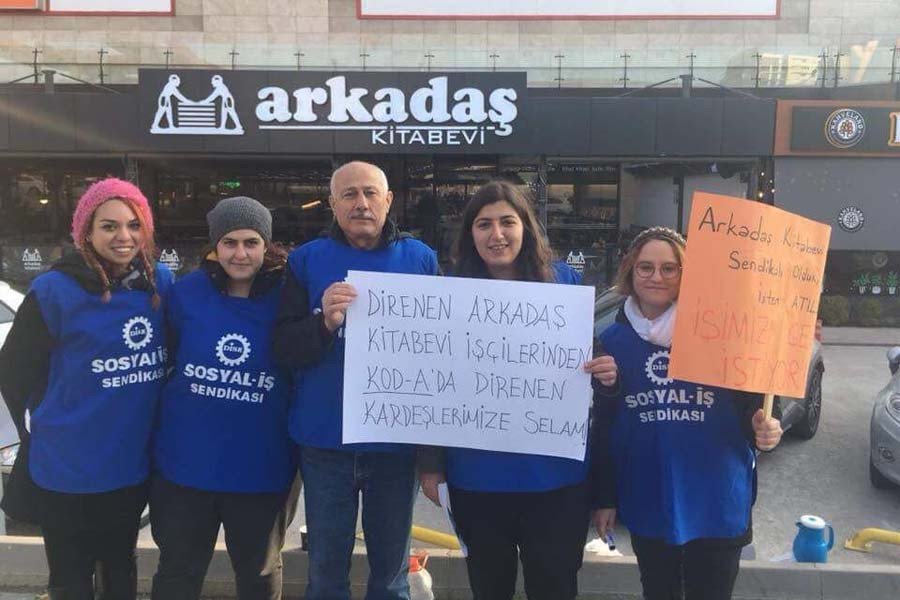 arkadaş
KİTABEVİ
KAHVELAND
DİSK
SOSYAL-İŞ
SENDİKASI
DİSK
SOSYAL-İŞ
SENDİKASI
DİRENEN ARKADAŞ
KİTABEVİ İŞÇİLERİNDEN
KOD-A'DA DİRENEN
KARDEŞLERİMİZE SELAM!
Arkadaş Kitabevi
Sendikalı Olduk
İşten ATIL
İŞİMİZİ GE
İSTİYOR
DİSK
SOSYAL-İŞ
SENDİKASI